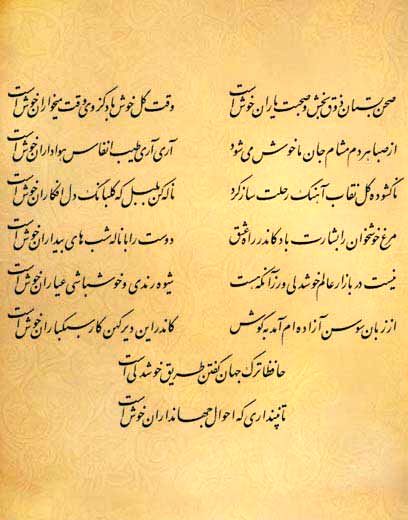 صحن بستان ذوق بخش و صحبت یاران خوش است وقت گل خوش باد کز وی وقت میخواران خوش است
از صبا هر دم مشام جان ما خوش می‌شود آری آری طیب انفاس هواداران خوش است
ناگشوده گل نقاب آهنگ رحلت ساز کرد ناله کن بلبل که گلبانگ دل افکاران خوش است
مرغ خوشخوان را بشارت باد کاندر راه عشق دوست را با ناله شب‌های بیداران خوش است
نیست در بازار عالم خوشدلی ور زانکه هست شیوه رندی و خوش باشی عیاران خوش است
از زبان سوسن آزاده‌ام آمد به گوش کاندر این دیر کهن کار سبکباران خوش است
حافظا ترک جهان گفتن طریق خوشدلی است
تا نپنداری که احوال جهانداران خوش است